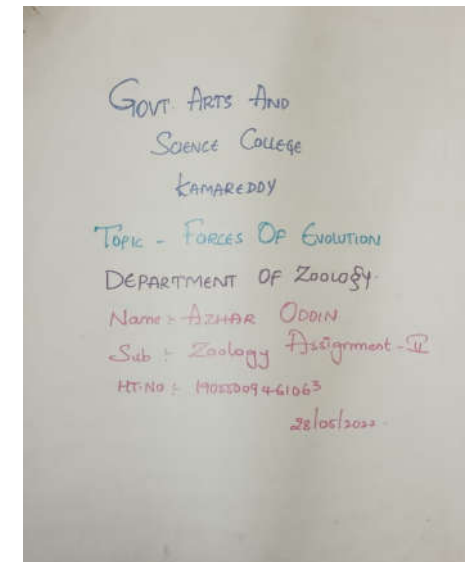 GOVT. ARTS AND
SCIENCE COLLEGE
KAMAREDDY
TOPIC - FORCES OF EVOLUTION
DEPARTMENT OF ZOOLOGY.
Name :- AZHAR ODDIN
Sub :- Zoology Assignment - II
HT.NO :- 19055009461063
28/05/2022.